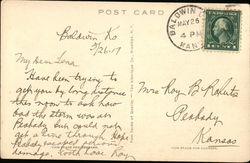 POST CARD
Baldwin Ks
5/26/17
My dear Lena
Have been trying to
get you by long distance
this noon to ask how
bad the storm was at
Peabody but could not
get a line through. Hope
Peabody escaped serious
damage.
BALDWIN
MAY 26
4 PM
KANS
Mrs Roy B Roberts
Peabody
Kansas